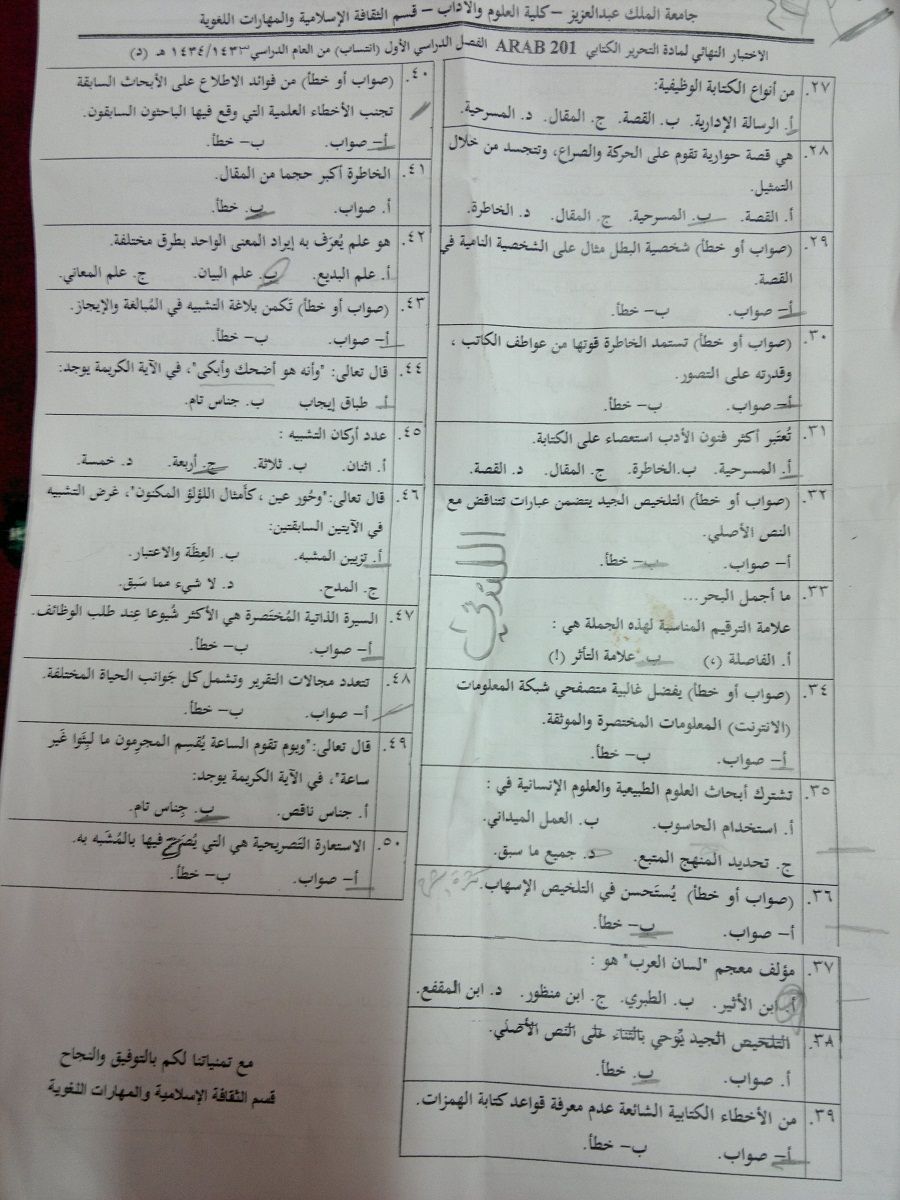 جامعة الملك عبدالعزيز – كلية العلوم والآداب – قسم الثقافة الإسلامية والمهارات اللغوية
الاختبار النهائي لمادة التحرير الكتابي ARAB 201 الفصل الدراسي الأول (انتساب) من العام الدراسي ١٤٣٤/١٤٣٣ هـ (د)
٢٧. من أنواع الكتابة الوظيفية:
أ. الرسالة الإدارية. ب. القصة. ج. المقال. د. المسرحية.
٢٨. هي قصة حوارية تقوم على الحركة والصراع، وتتجسد من خلال
التمثيل.
أ. القصة. ب. المسرحية. ج. المقال. د. الخاطرة.
٢٩. (صواب أو خطأ) شخصية البطل مثال على الشخصية النامية في
القصة.
أ– صواب. ب– خطأ.
٣٠. (صواب أو خطأ) تستمد الخاطرة قوتها من عواطف الكاتب ،
وقدرته على التصور.
أ– صواب. ب– خطأ.
٣١. تُعتَبر أكثر فنون الأدب استعصاء على الكتابة.
أ. المسرحية. ب.الخاطرة. ج. المقال. د. القصة.
٣٢. (صواب أو خطأ) التلخيص الجيد يتضمن عبارات تتناقض مع
النص الأصلي.
أ– صواب. ب– خطأ.
٣٣. ما أجمل البحر...
علامة الترقيم المناسبة لهذه الجملة هي :
أ. الفاصلة (،) ب. علامة التأثر (!)
٣٤. (صواب أو خطأ) يفضل غالبية متصفحي شبكة المعلومات
(الانترنت) المعلومات المختصرة والموثقة.
أ– صواب. ب– خطأ.
٣٥. تشترك أبحاث العلوم الطبيعية والعلوم الإنسانية في :
أ. استخدام الحاسوب. ب. العمل الميداني.
ج. تحديد المنهج المتبع. د. جميع ما سبق.
٣٦. (صواب أو خطأ) يُستَحسن في التلخيص الإسهاب.
أ– صواب. ب– خطأ.
٣٧. مؤلف معجم "لسان العرب" هو :
أ. ابن الأثير. ب. الطبري. ج. ابن منظور. د. ابن المقفع.
٣٨. التلخيص الجيد يُوحي بالثناء على النص الأصلي.
أ. صواب. ب. خطأ.
٣٩. من الأخطاء الكتابية الشائعة عدم معرفة قواعد كتابة الهمزات.
أ– صواب. ب– خطأ.
٤٠. (صواب أو خطأ) من فوائد الاطلاع على الأبحاث السابقة
تجنب الأخطاء العلمية التي وقع فيها الباحثون السابقون.
أ– صواب. ب– خطأ.
٤١. الخاطرة أكبر حجما من المقال.
أ. صواب. ب. خطأ.
٤٢. هو علم يُعرَف به إيراد المعنى الواحد بطرق مختلفة.
أ. علم البديع. ب. علم البيان. ج. علم المعاني.
٤٣. (صواب أو خطأ) تَكمن بلاغة التشبيه في المُبالغة والإيجاز.
أ– صواب. ب– خطأ.
٤٤. قال تعالى: "وأنه هو أضحك وأبكى"، في الآية الكريمة يوجد:
أ. طباق إيجاب ب. جناس تام.
٤٥. عدد أركان التشبيه :
أ. اثنان. ب. ثلاثة. ج. أربعة. د. خمسة.
٤٦. قال تعالى:"وحُور عين ، كأمثال اللؤلؤ المكنون"، غرض التشبيه
في الآيتين السابقتين:
أ. تزيين المشبه. ب. العِظَة والاعتبار.
ج. المدح. د. لا شيء مما سَبق.
٤٧. السيرة الذاتية المُختَصرة هي الأكثر شُيوعا عِند طلب الوظائف.
أ– صواب. ب– خطأ.
٤٨. تتعدد مجالات التقرير وتشمل كل جَوانب الحياة المختلفة.
أ– صواب. ب– خطأ.
٤٩. قال تعالى:"ويوم تقوم الساعة يُقسِم المجرمون ما لبِثَوا غَير
ساعة"، في الآية الكريمة يوجد:
أ. جناس ناقص. ب. جِناس تام.
٥٠. الاستعارة التَصريحية هي التي يُصَرح فيها بالمُشَبه به.
أ– صواب. ب– خطأ.
مع تمنياتنا لكم بالتوفيق والنجاح
قسم الثقافة الإسلامية والمهارات اللغوية